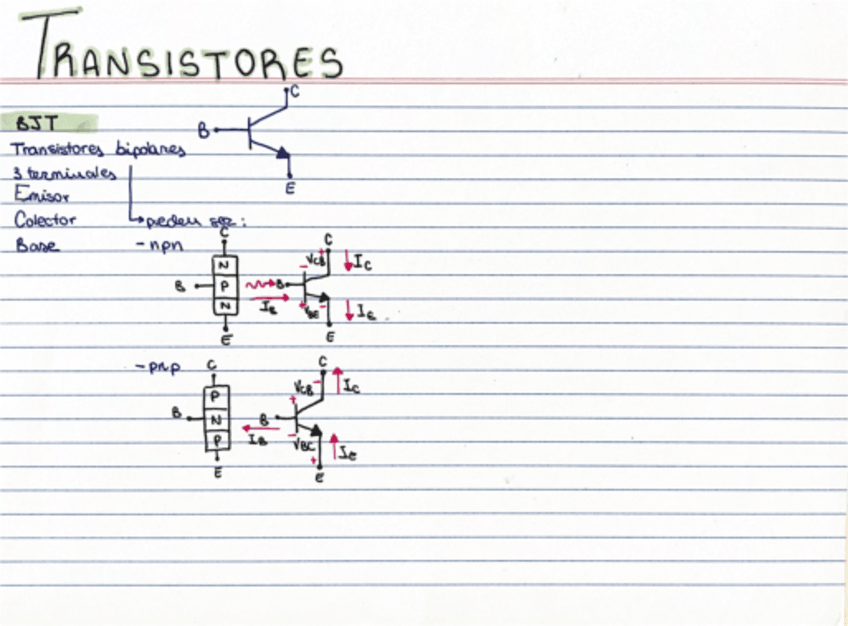 TRANSISTORES
C
BJT
B
Transistores bipolares
E
3 terminales
Emisor
Colector
pueden ser:
Base
- npn
C
N
B
P
N
E
C
VCB
B
IC
IB
VBE
IE
E
- pnp
C
P
B
N
P
E
C
VCB
IC
B
IB
VBC
IE
E